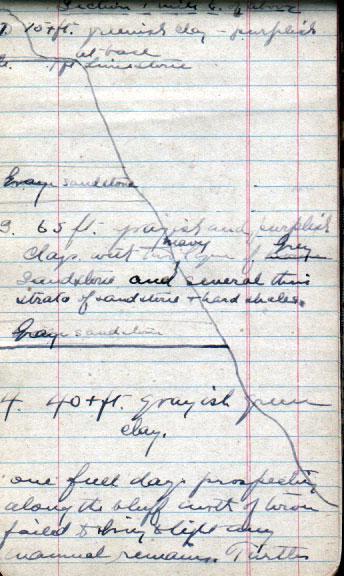 Section 1 mile E. of above
10+ft. greenish clay - purplish
at base
1 ft limestone
Gray sandstone
3. 65 ft. grayish and purplish
Clays with heavy layer of Grey
Sandstone and several thin
strata of sandstone + hard shales.
Gray sandstone
4. 40+ft. grayish green
clay.
one full days prospecting
along the bluff north of town
failed to bring to light any
mammal remains. Turtles